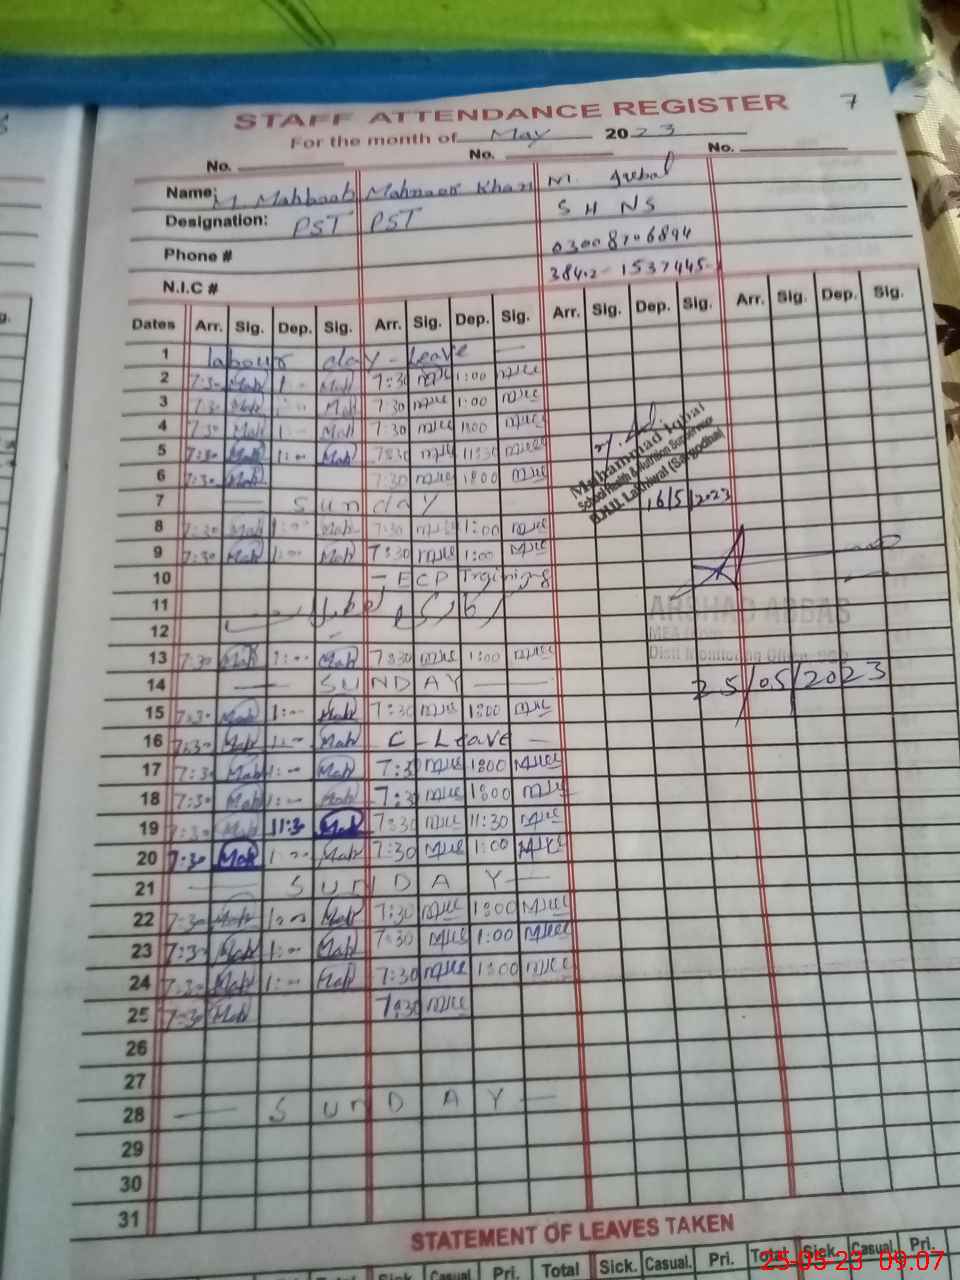 7
STAFF ATTENDANCE REGISTER
For the month of May 2023
No. No. No.
Name: M. Mahboob Mahnoor Khan M. Iqbal
Designation: PST PST S H N S
Phone # 03008706894
N.I.C #
Dates Arr. Sig. Dep. Sig. Arr. Sig. Dep. Sig. Arr. Sig. Dep. Sig. Arr. Sig. Dep. Sig.
1 labour day - Leave
2 7:30 Mah 1:00 Mah 7:30 1:00
3 7:30 Mah 1:00 Mah 7:30 1:00
4 7:30 Mah 1:00 Mah 7:30 1:00
5 7:30 Mah 1:00 Mah 7:30 11:30
6 7:30 Mah 7:30 1:00
Muhammad Iqbal
School Health & Nutrition Supervisor
B.H.U. (Sargodha)
7 Sunday 16/5/2023
8 7:30 Mah 1:00 Mah 7:30 1:00
9 7:30 Mah 1:00 Mah 7:30 1:00
10 ECP Training
11
ARSHAD ABBAS
MEA
12
13 7:30 Mah 1:00 Mah 7:30 1:00
Distt Monitoring Officer
14 SUNDAY 25/05/2023
15 7:30 Mah 1:00 Mah 7:30 1:00
16 7:30 Mah 1:00 Mah C - Leave
17 7:30 Mah 1:00 Mah 7:30 1:00
18 7:30 Mah 1:00 Mah 7:30 1:00
19 7:30 Mah 11:30 Mah 7:30 11:30
20 7:30 Mah 1:00 Mah 7:30 1:00
21 SUNDAY
22 7:30 Mah 1:00 Mah 7:30 1:00
23 7:30 Mah 1:00 Mah 7:30 1:00
24 7:30 Mah 1:00 Mah 7:30 1:00
25 7:30 Mah 7:30
26
27
28 SUNDAY
29
30
31
STATEMENT OF LEAVES TAKEN
Sick Casual Pri. Total Sick. Casual. Pri. Total Sick. Casual Pri.
25-05-23 09.07